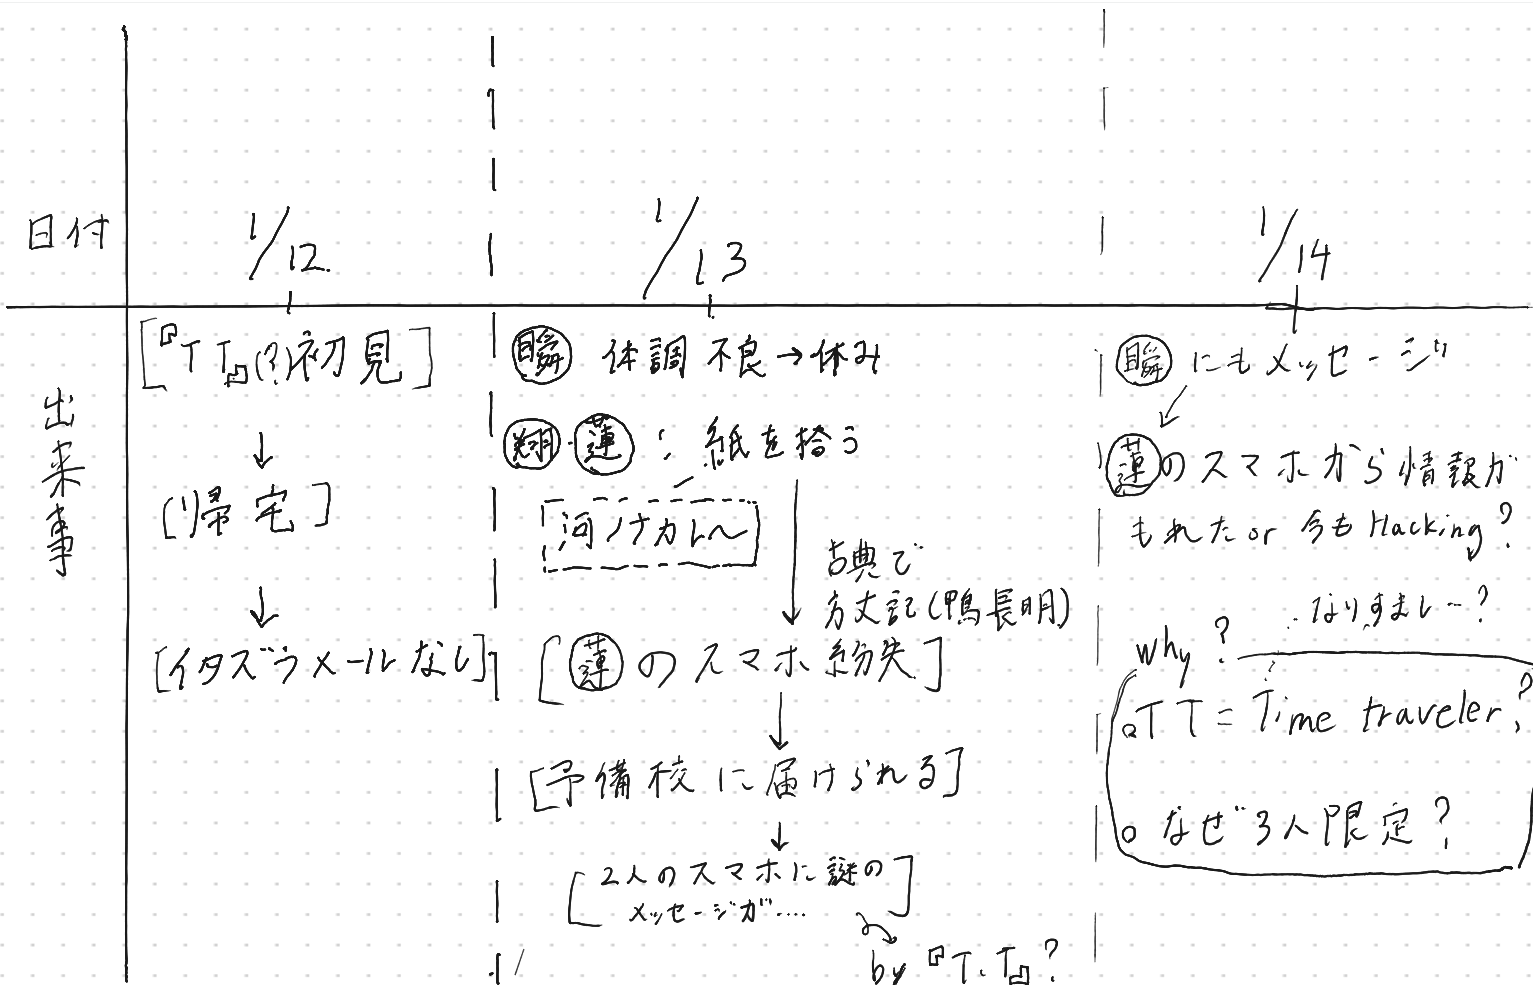 日付
1/12
1/13
1/14
出来事
[『TT』(?)初見]
↓
[帰宅]
↓
[イタズラメールなし]
瞬 体調不良→休み
翔・蓮：紙を拾う
河ノナカレ〜
古典で
方丈記(鴨長明)
[蓮のスマホ紛失]
↓
[予備校に届けられる]
↓
[2人のスマホに謎の
メッセージが....]
by『T.T』?
瞬にもメッセージ
蓮のスマホから情報が
もれたor 今もHacking?
なりすまし…?
why?
TT = Time traveler?
なぜ3人限定?